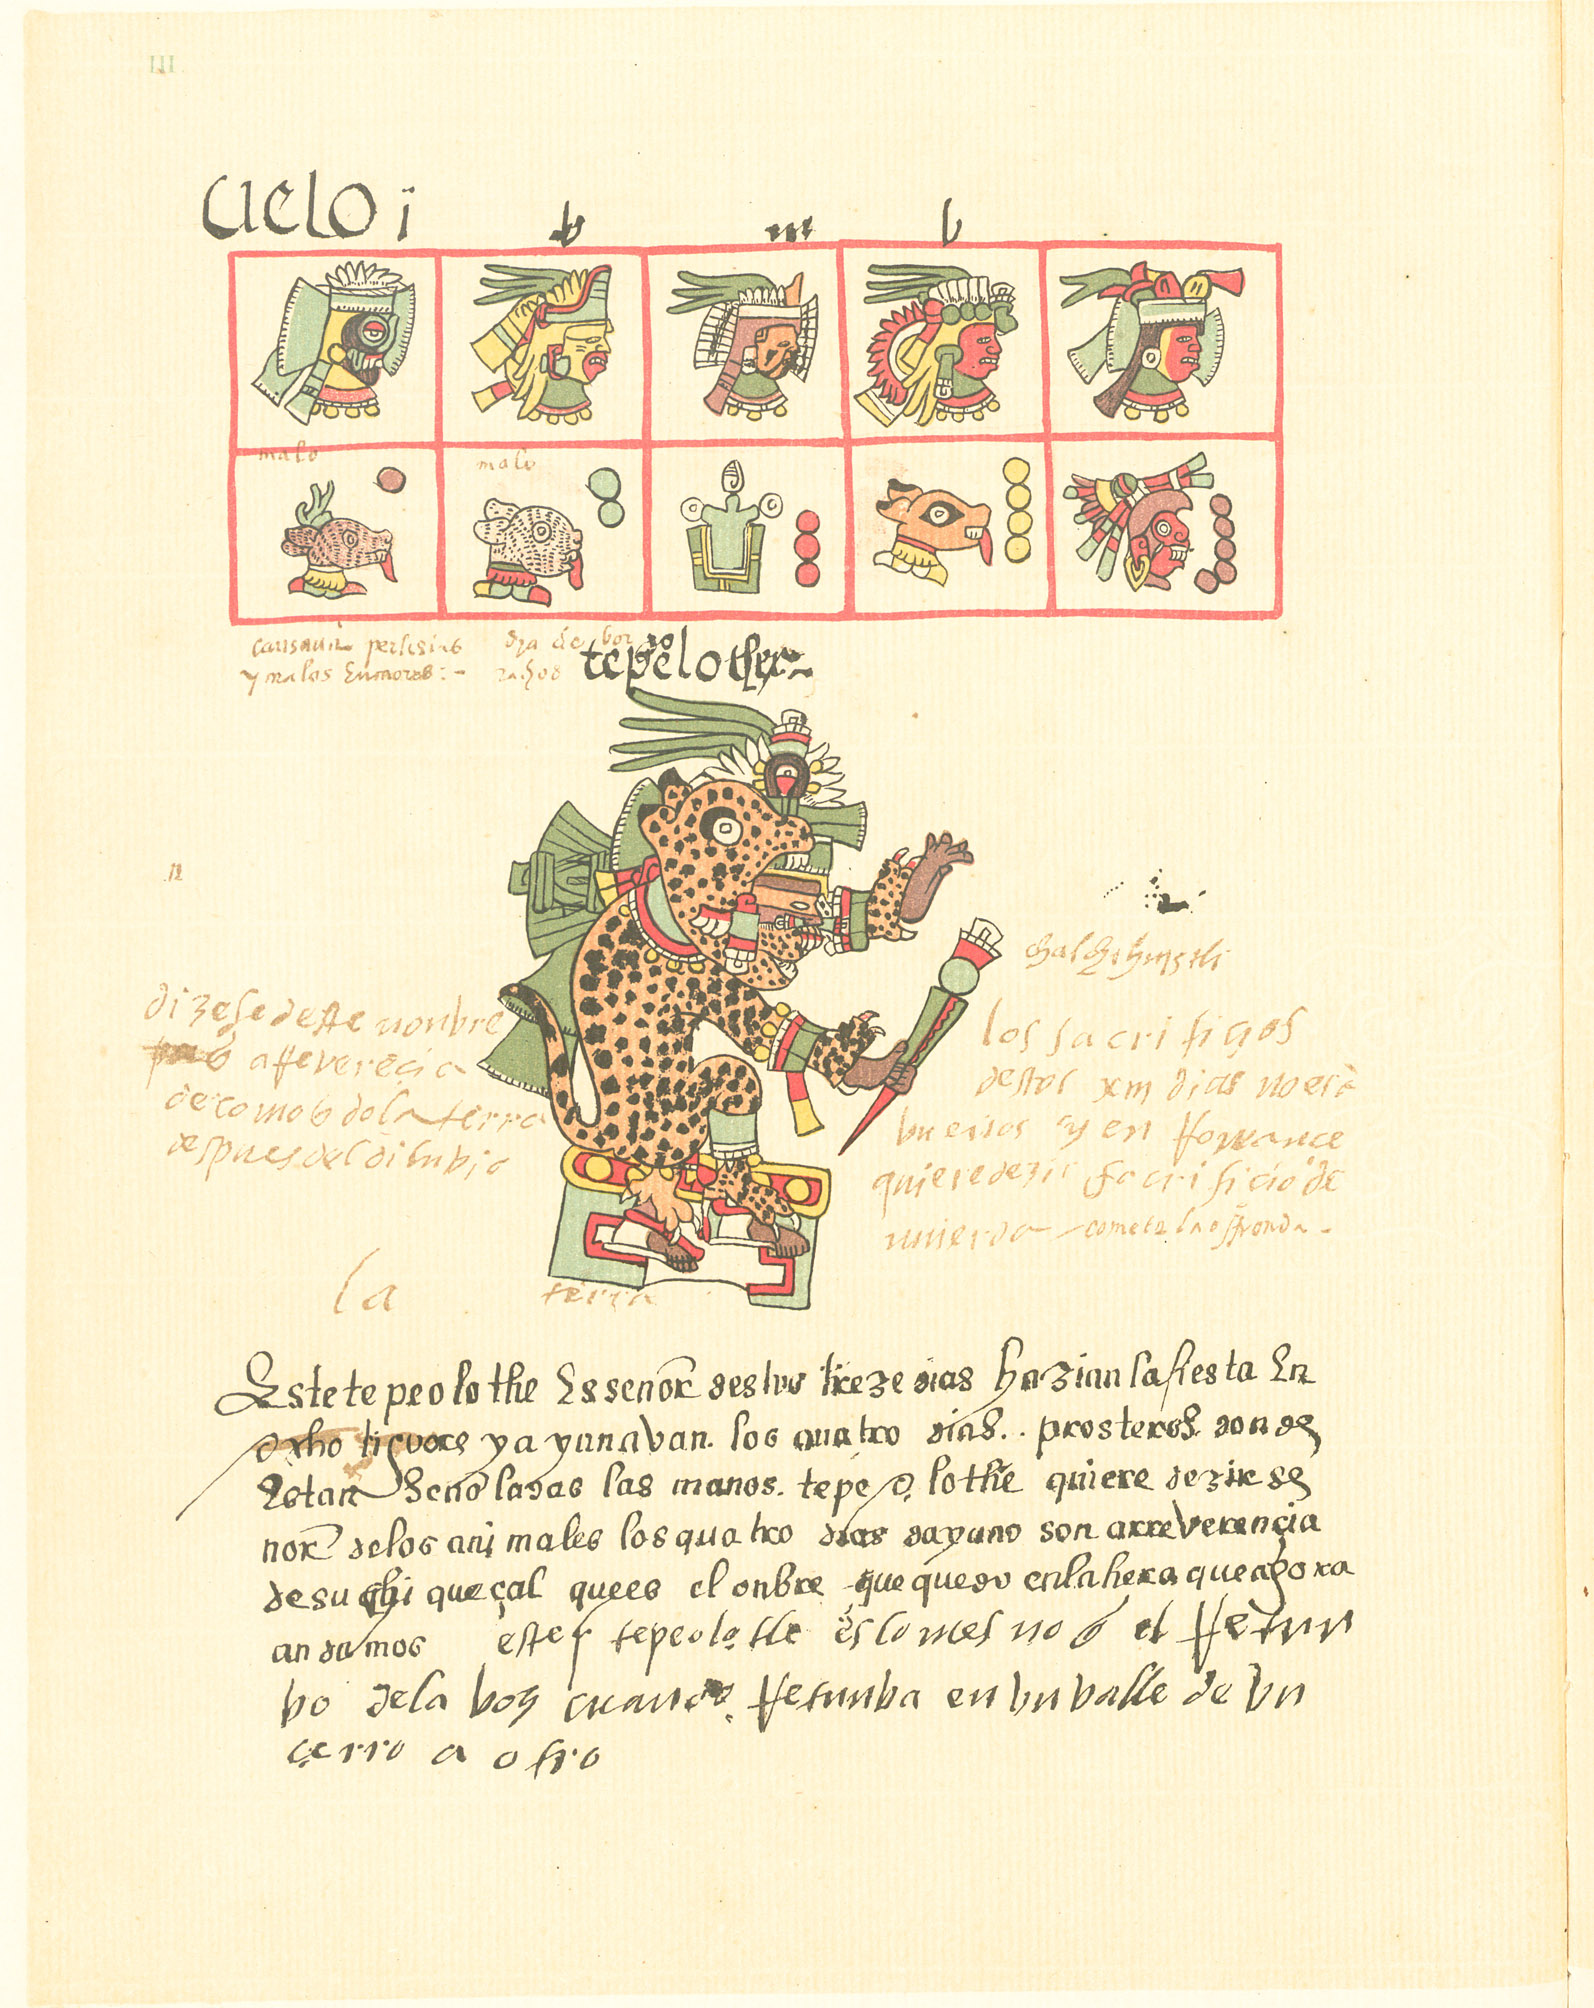 III
cielo i
b
m
b
malo
malo
causavā perlisias
y malos humores :-
dia de bor
rachos
tepeolothe
n
chalchihuiztli
dizese deste nonbre
a rreverēçia
de como q̄do la terra
despues del dilubio
los sacrifiçios
destos xiii dias no erā
buenos y en rromance
quiere dezir sacrifiçio de
mierda come tē la offrenda -
la
terra
Este tepeolothe Es señor destos treze dias hazian la fiesta En
dicho y ayunavan los quatro dias prosteros donde
Estan Señaladas las manos. tepeolothe quiere dezir se
ñor delos animales los quatro dias dayuno son a rreverençia
de suchiqueçal que es el onbre que quedo en la tierra que agora
andamos este tepeolotle es lo mesmo q̄ el rretun
bo dela boz cuando rretunba en un balle de un
çerro a otro